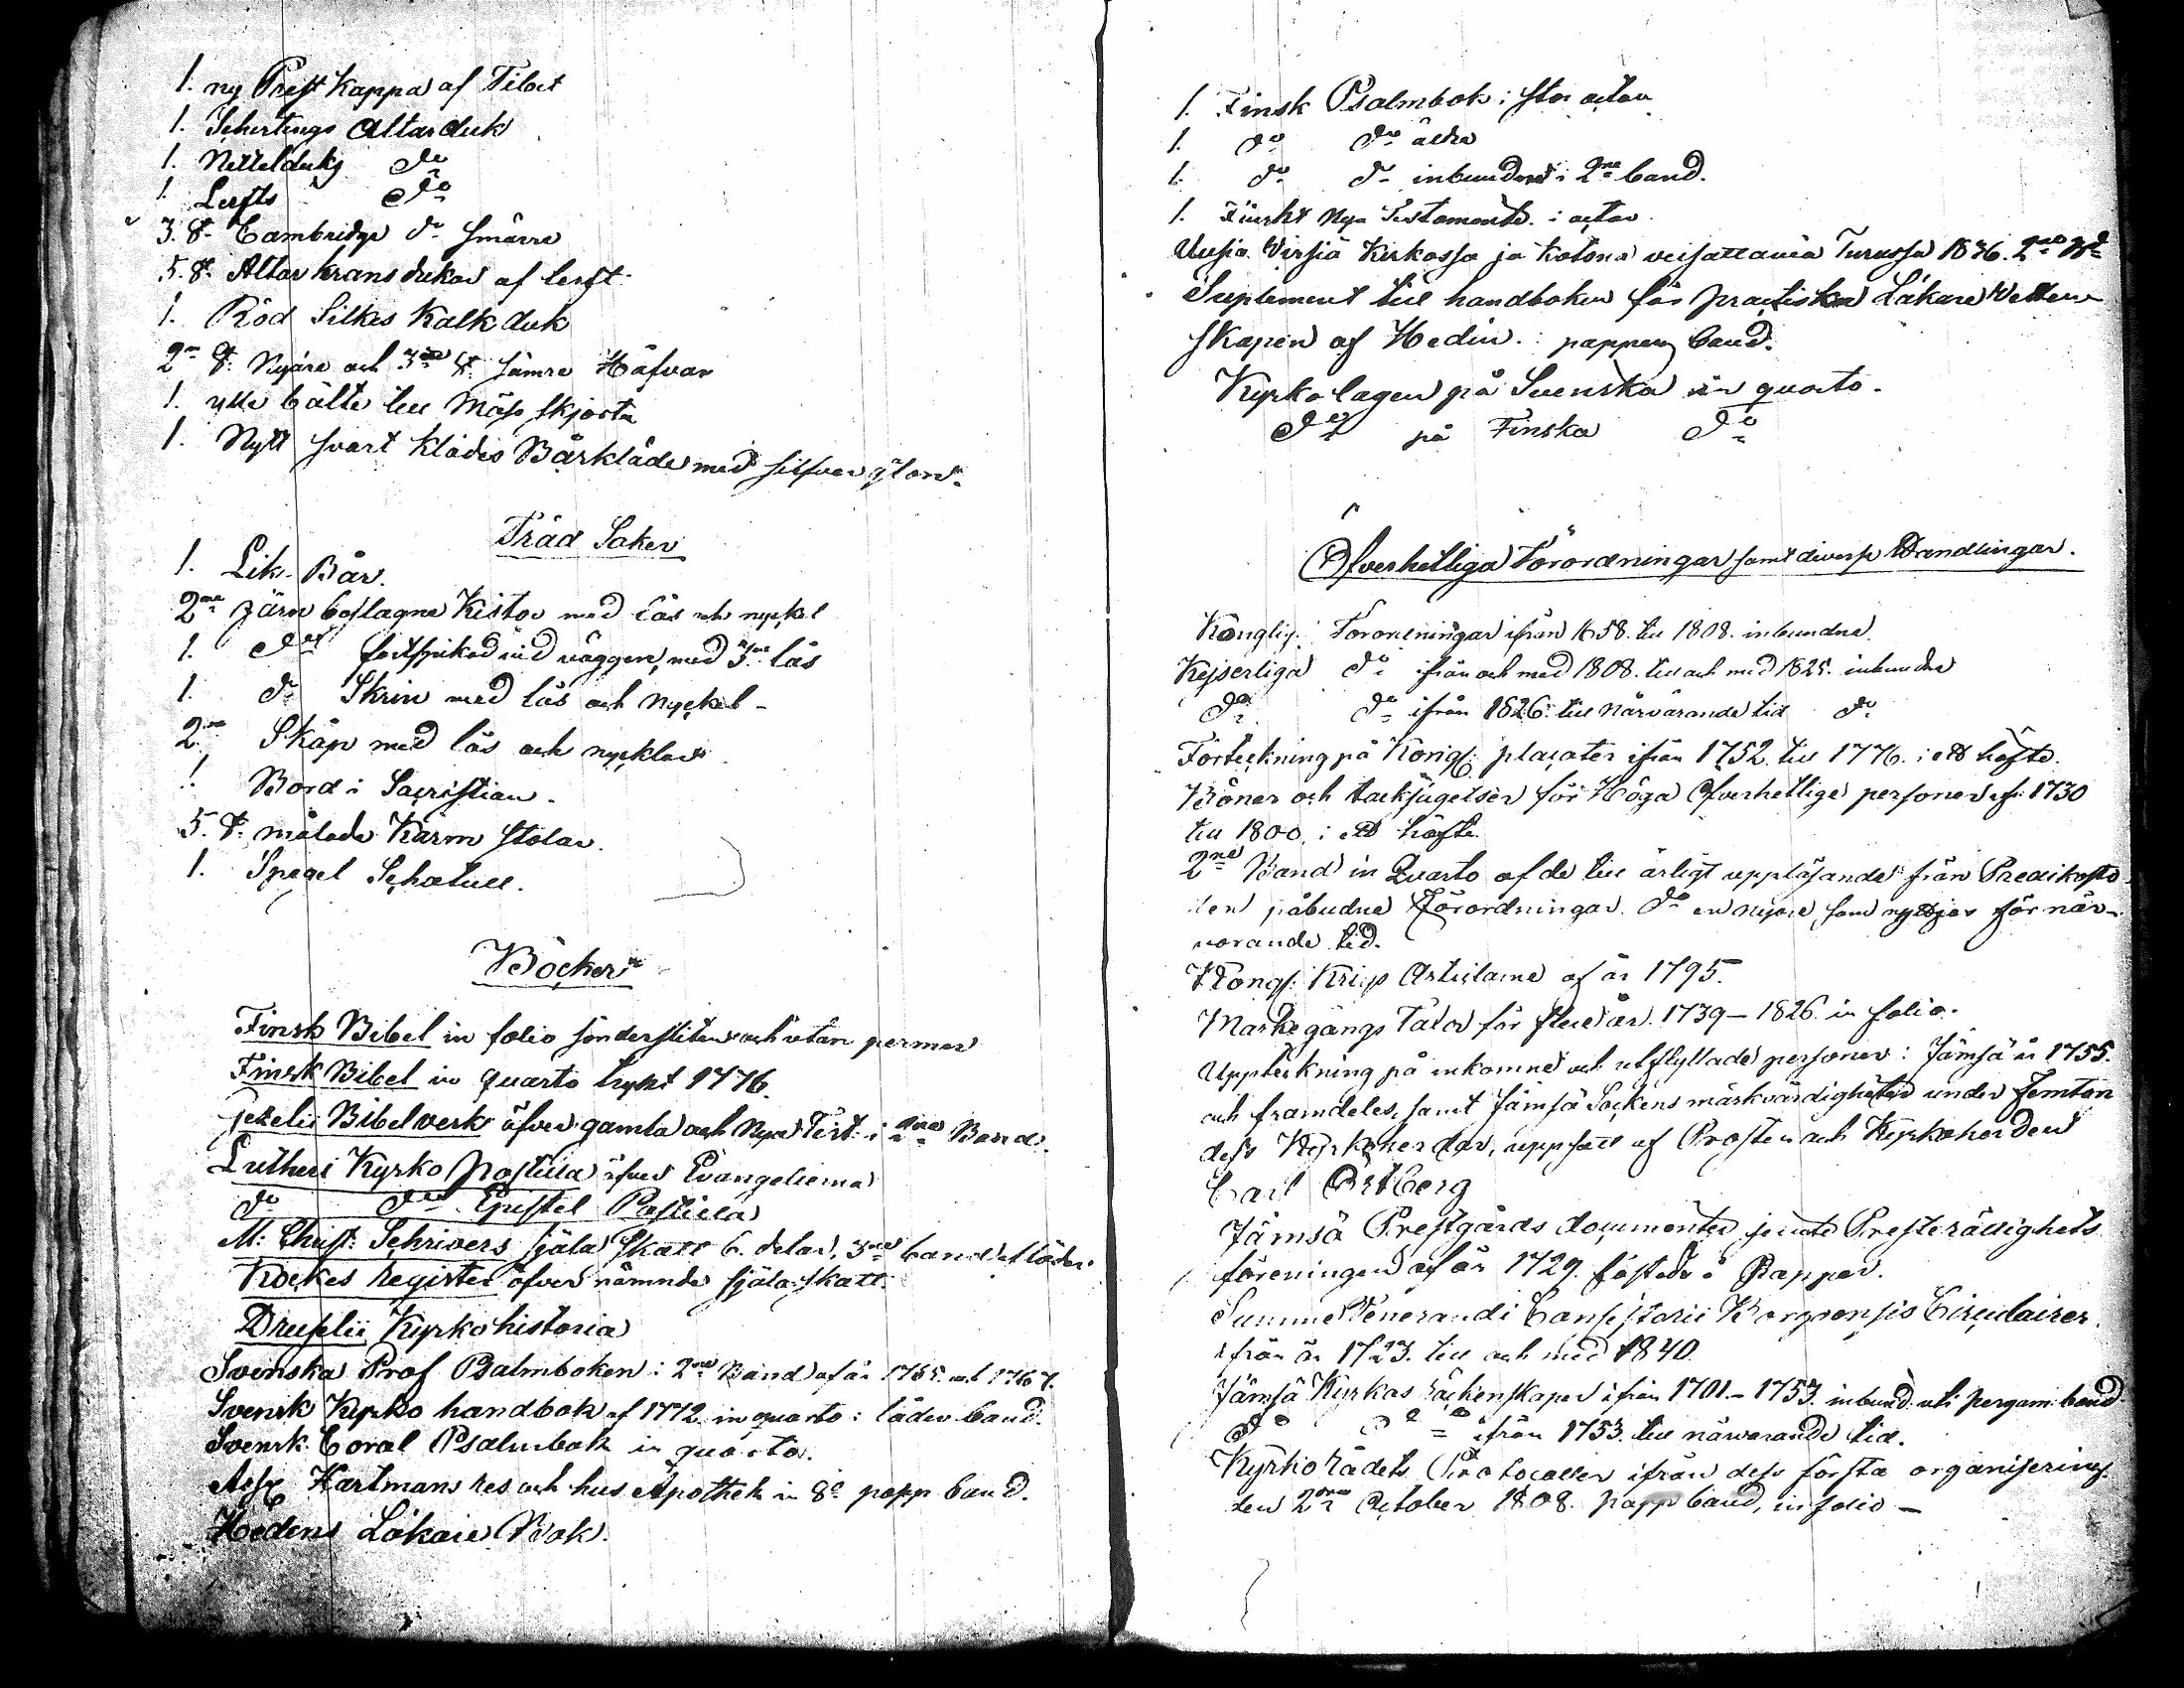 1. ny Prest Kappa af Tibet
1. Schirtings Altarduk
1. Nettelduks do
1. Lerfts do
3. st. Cambridge do smärre
5. st. Altar krans dukar af lerft
1. Röd Silkes Kalk duk
2ne st. Nyare och 3ne st. sämre Håfvar
1. ylle bälte till Mäss skjorta
1. Nytt svart klädes Bårkläde med silfver
Träd Saker
1. Lik-Bår.
2ne Järn beslagne Kistor med lås och nyckel
1. do fastspikad vid väggen, med 3ne lås
1. do Skrin med lås och Nyckel -
2ne Skåp med lås och nycklar
1. Bord i Sacristian.
5. st. målade Karm stolar.
1. Spegel Schatull.
Böcker
Finsk Bibel in folio söndersliten och utan permar
Finsk Bibel in quarto tryckt 1776.
Gezelii Bibelverk öfver gamla och Nya Test: i 2ne Band.
Lutheri Kyrko Postilla öfver Evangelierna
do do Epistel Postilla
M: Christ: Schrivers Själa Skatt 6. delar, 3ne band af läder.
Kockes Register öfver nämnde själa skatt.
Druselii Kyrkohistoria
Svenska Prof Psalmboken i 2ne Band af år 1765. och 1767.
Svensk Kyrko handbok af 1772 in quarto i läder band.
Svensk Coral Psalmbok in quarto.
Hartmans res och hus Apothek in 8o papp band.
Hedens Läkare Bok.
1. Finsk Psalmbok i stor octav
1. do do äldre
1. do do inbunden i 2ne band.
1. Finskt Nya Testamente i octav.
Uusia Virsiä Kirkossa ja Kotona veisattavia Turussa 1836. 2ne
Suplement till handboken för practiska Läkare Vetten-
skapen af Hedin i pappers band.
Kyrko lagen på Svenska in quarto.
do på Finska do
Öfverhetliga Förordningar samt diverse Handlingar.
Konglig: Förordningar ifrån 1658. till 1808. inbundne
Kejserliga do ifrån och med 1808. till och med 1825. inbundne
do do ifrån 1826. till närvarande tid do
Förteckning på Kongl: placater ifrån 1752 till 1776. i ett häfte.
Böner och tacksägelser för Höga Öfverhetlige personer ifr: 1730
till 1800. i ett häfte.
2ne Band in Quarto af de till årligt uppläsande från Prediksto
len påbudne Förordningar. do en nyare som nyttjas för när-
varande tid.
Kongl: Krigs Articlarne af år 1795.
Markegångs Taxor för flere år. 1739 - 1826. in folio.
Uppteckning på inkomne och utflyttade personer i Jämsä år 1755.
och framdeles, samt Jämsä Sockens märkvärdigheter under femton
dess Kyrkoherdar, uppsatt af Prosten och Kyrkoherden
Carl Örtberg
Jämsä Prestgårds documenter jemte Presterättighets
föreningen af år 1729. fästade i Papper.
Summe Venerandi Consistorii Borgoensis Circulairer
ifrån år 1723. till och med 1840.
Jämsä Kyrkas Räkenskaper ifrån 1701. - 1753. inbund. uti pergam: band
do do ifrån 1753. till närvarande tid.
Kyrko Rådets Protocoller ifrån dess första organisering
den October 1808. papp band, in folio -